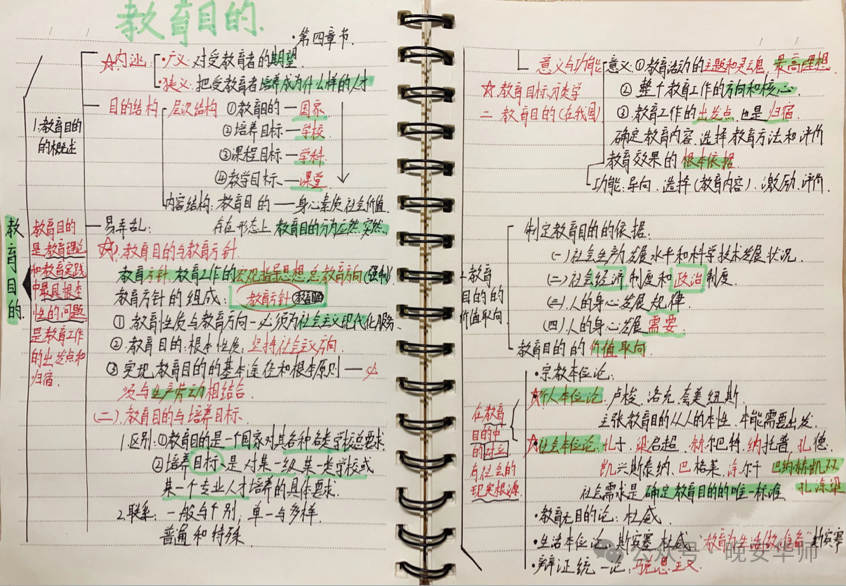 教育目的.
·第四章节.
教育目的
教育目的是教育理论和教育实践中最具根本性的问题是教育工作的出发点和归宿.
1.教育目的的概述
☆内涵:
·广义: 对受教育者的期望
·狭义: 把受教育者培养成为什么样的人才
目的结构
层次结构 ①教育目的—国家
②培养目标—学校
③课程目标—学科
④教学目标—课堂
内容结构: 教育目的—身心素质、社会价值.
易弄乱: 存在形态上 教育目的分为应然、实然.
(一).教育目的与教育方针.
教育方针: 教育工作的宏观指导思想、总教育方向(强制)
教育方针的组成: 教育方针
①教育性质与教育方向—必须为社会主义现代化服务.
②教育目的: 根本性质, 坚持社会主义方向
③实现教育目的的基本途径和根本原则——必
须与生产劳动相结合.
(二).教育目的与培养目标.
1.区别: ①教育目的是一个国家对其各种各类学校总要求
②培养目标是对某一级、某一类学校或
某一个专业人才培养的具体要求.
2.联系: 一般与个别, 单一与多样.
普通和特殊
意义与功能:
意义: ①教育活动的主题和灵魂, 最高理想
②整个教育工作的方向和核心
③教育工作的出发点, 也是归宿
确定教育内容、选择教育方法和评价
教育效果的根本依据
功能: 导向、选择(教育内容)、激励、评价.
☆教育目标分类学
二.教育目的(在我国)
2.教育目的的价值取向
制定教育目的的依据:
(一)社会生产力发展水平和科学技术发展状况.
(二)社会经济制度和政治制度.
(三)人的身心发展规律.
(四)人的身心发展需要.
教育目的的价值取向
在教育目的中的对立与社会的现实根源.
·宗教本位论:
☆个人本位论: 卢梭、洛克、奈美、纽斯
主张教育目的从人的本性、本能需要出发.
☆社会本位论: 孔子、梁启超、赫尔巴特、纳托普、孔德.
凯兴斯泰纳、巴格莱、涂尔干
社会需求是确定教育目的的唯一标准
孔涂梁
·教育无目的论: 杜威.
·生活本位论: 斯宾塞、杜威 "教育为生活做准备"斯宾塞
·辩证统一论, 马克思主义
公众号 · 晚安华师